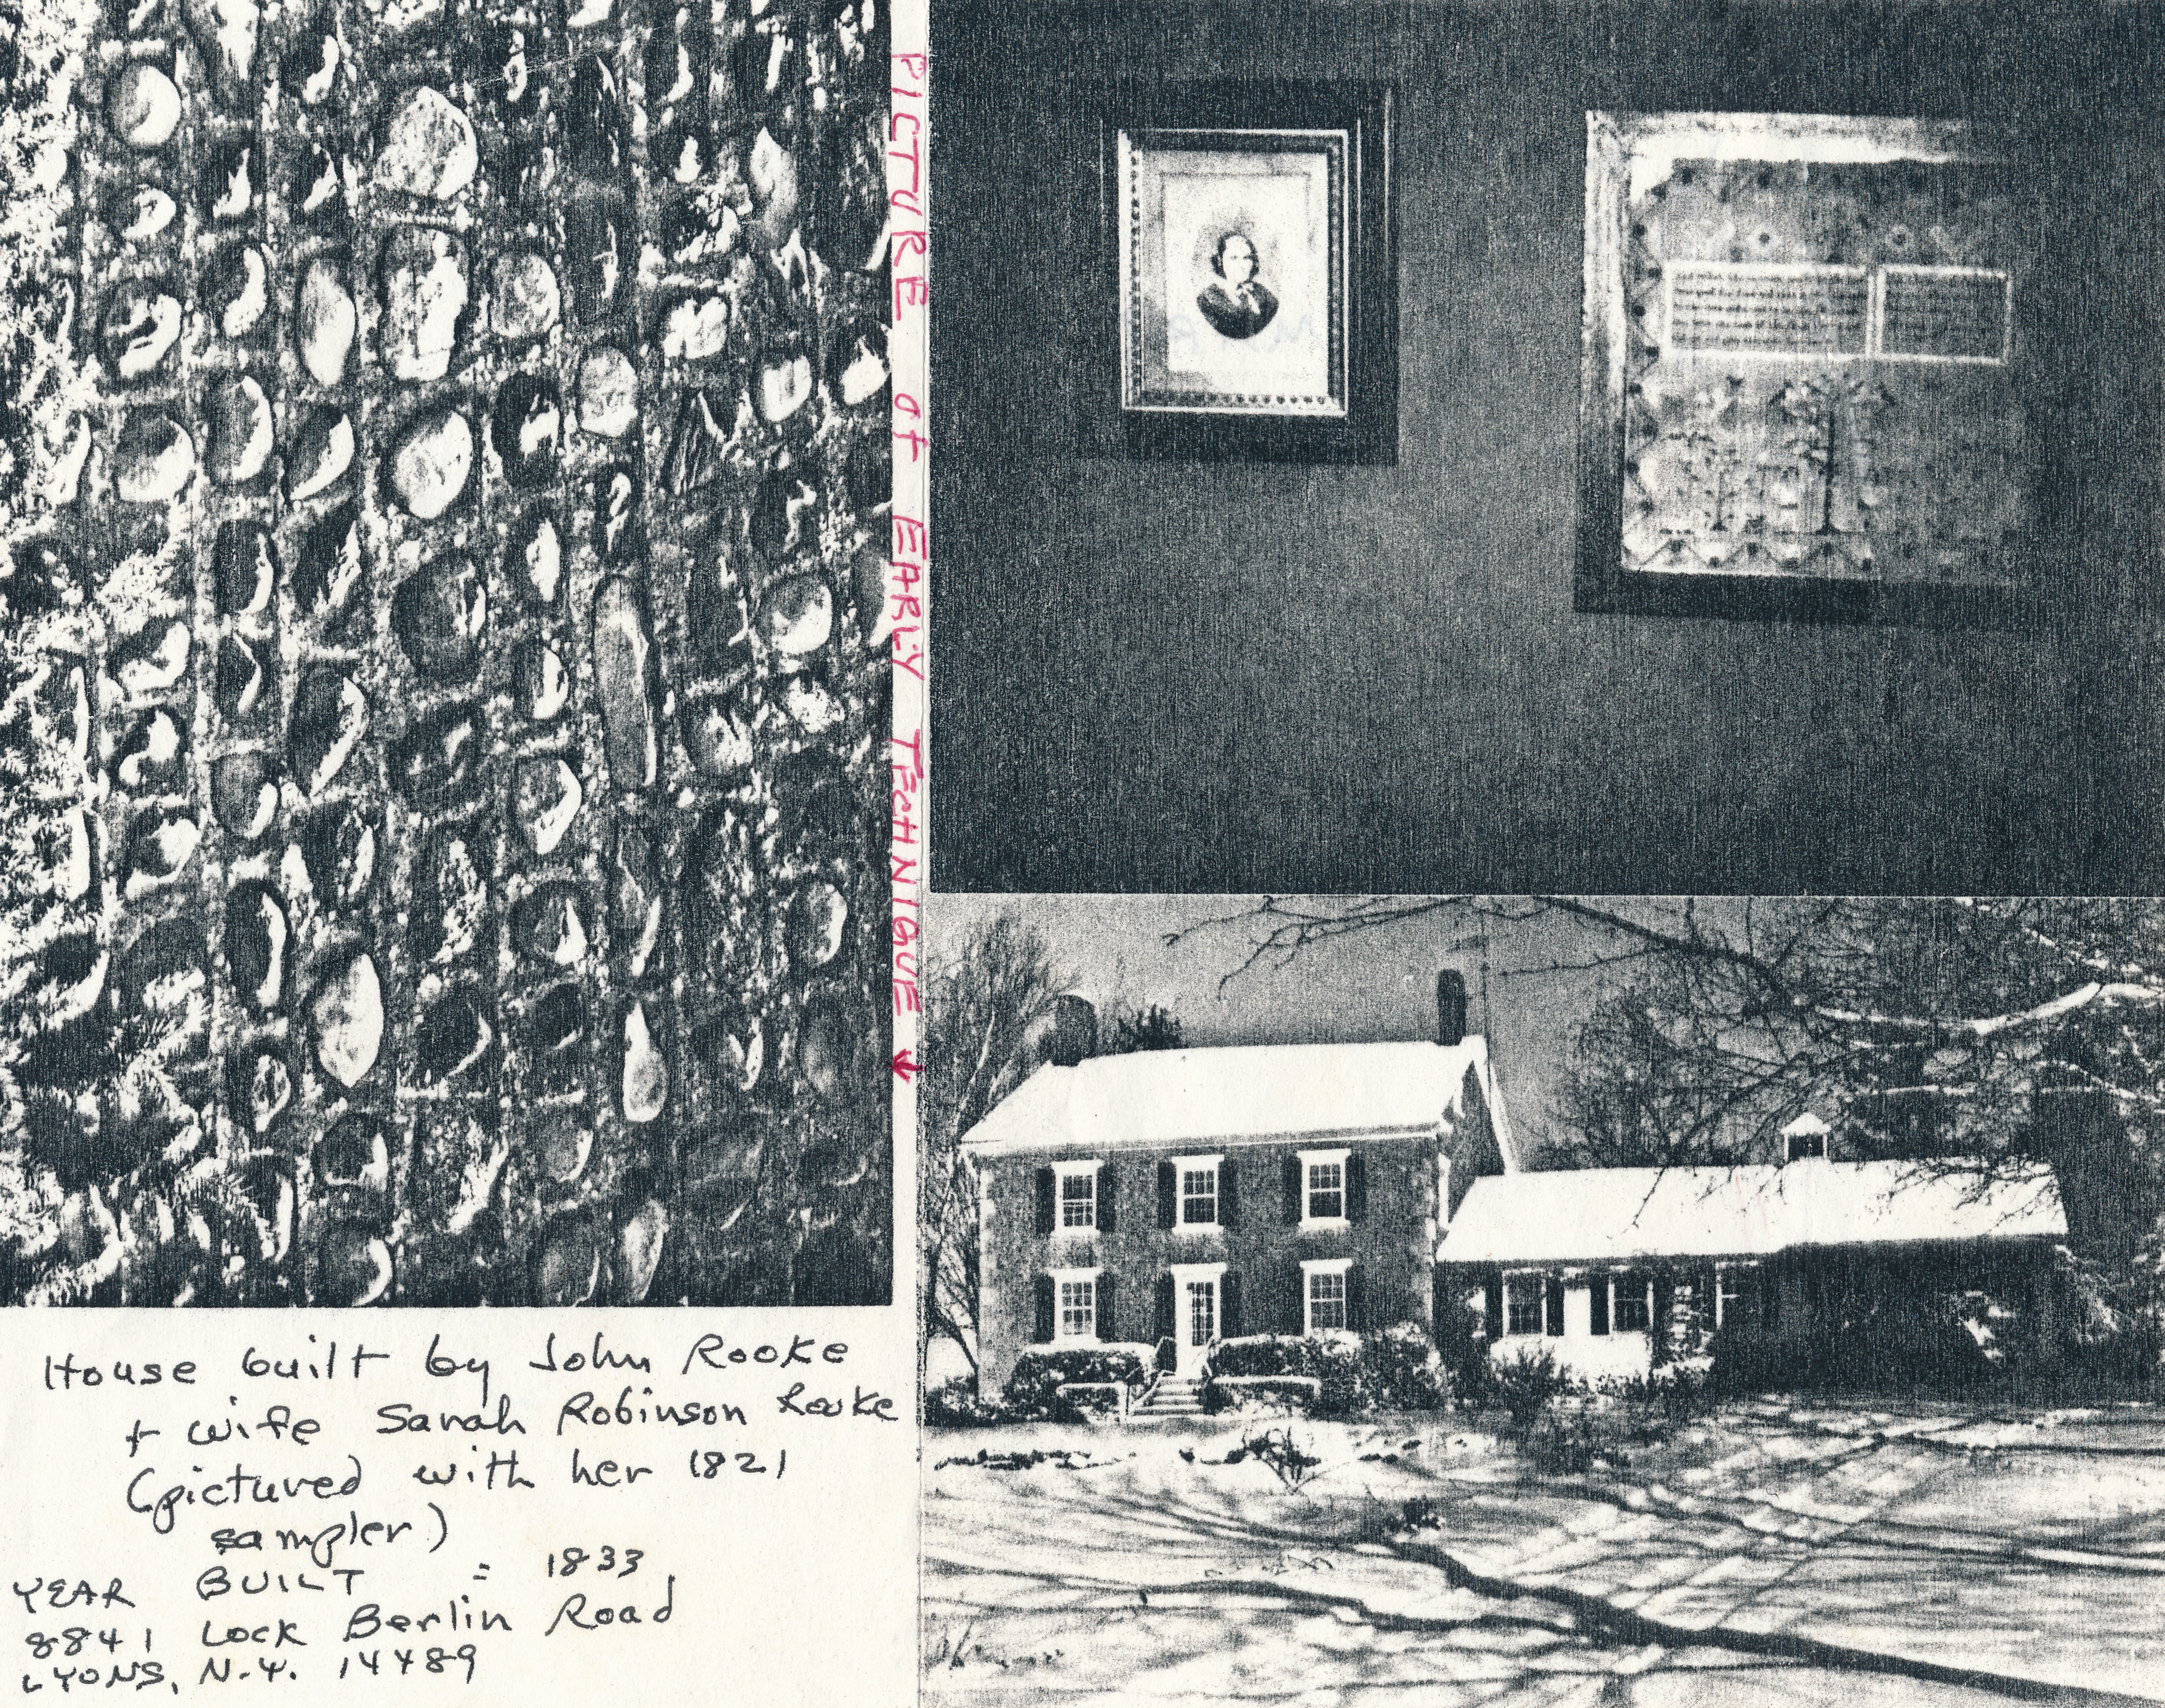 PICTURE of EARLY TECHNIQUE ↓
House built by John Rooke
+ wife Sarah Robinson Rooke
(pictured with her 1821
sampler)
YEAR BUILT = 1833
8841 Lock Berlin Road
LYONS, N.Y. 14489